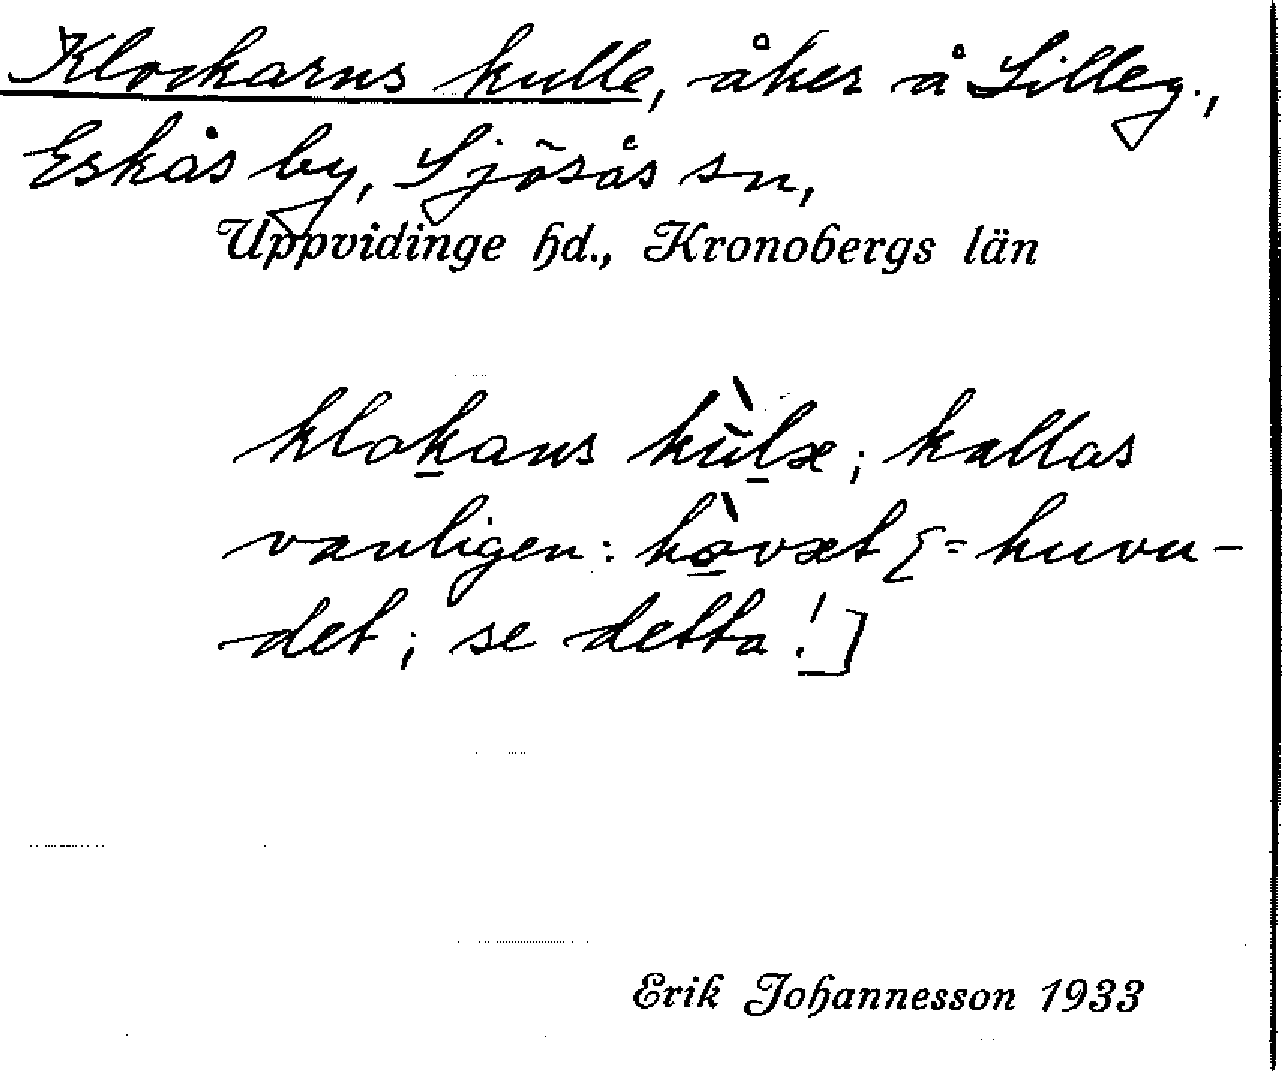 Klockarns kulle, åker å Lilleg.,
Eskås by, Sjösås sn,
Uppvidinge hd., Kronobergs län
klok̲ans kùl̲æ; kallas
vanligen: hò̲væt [= huvu-
det; se detta!]
Erik Johannesson 1933